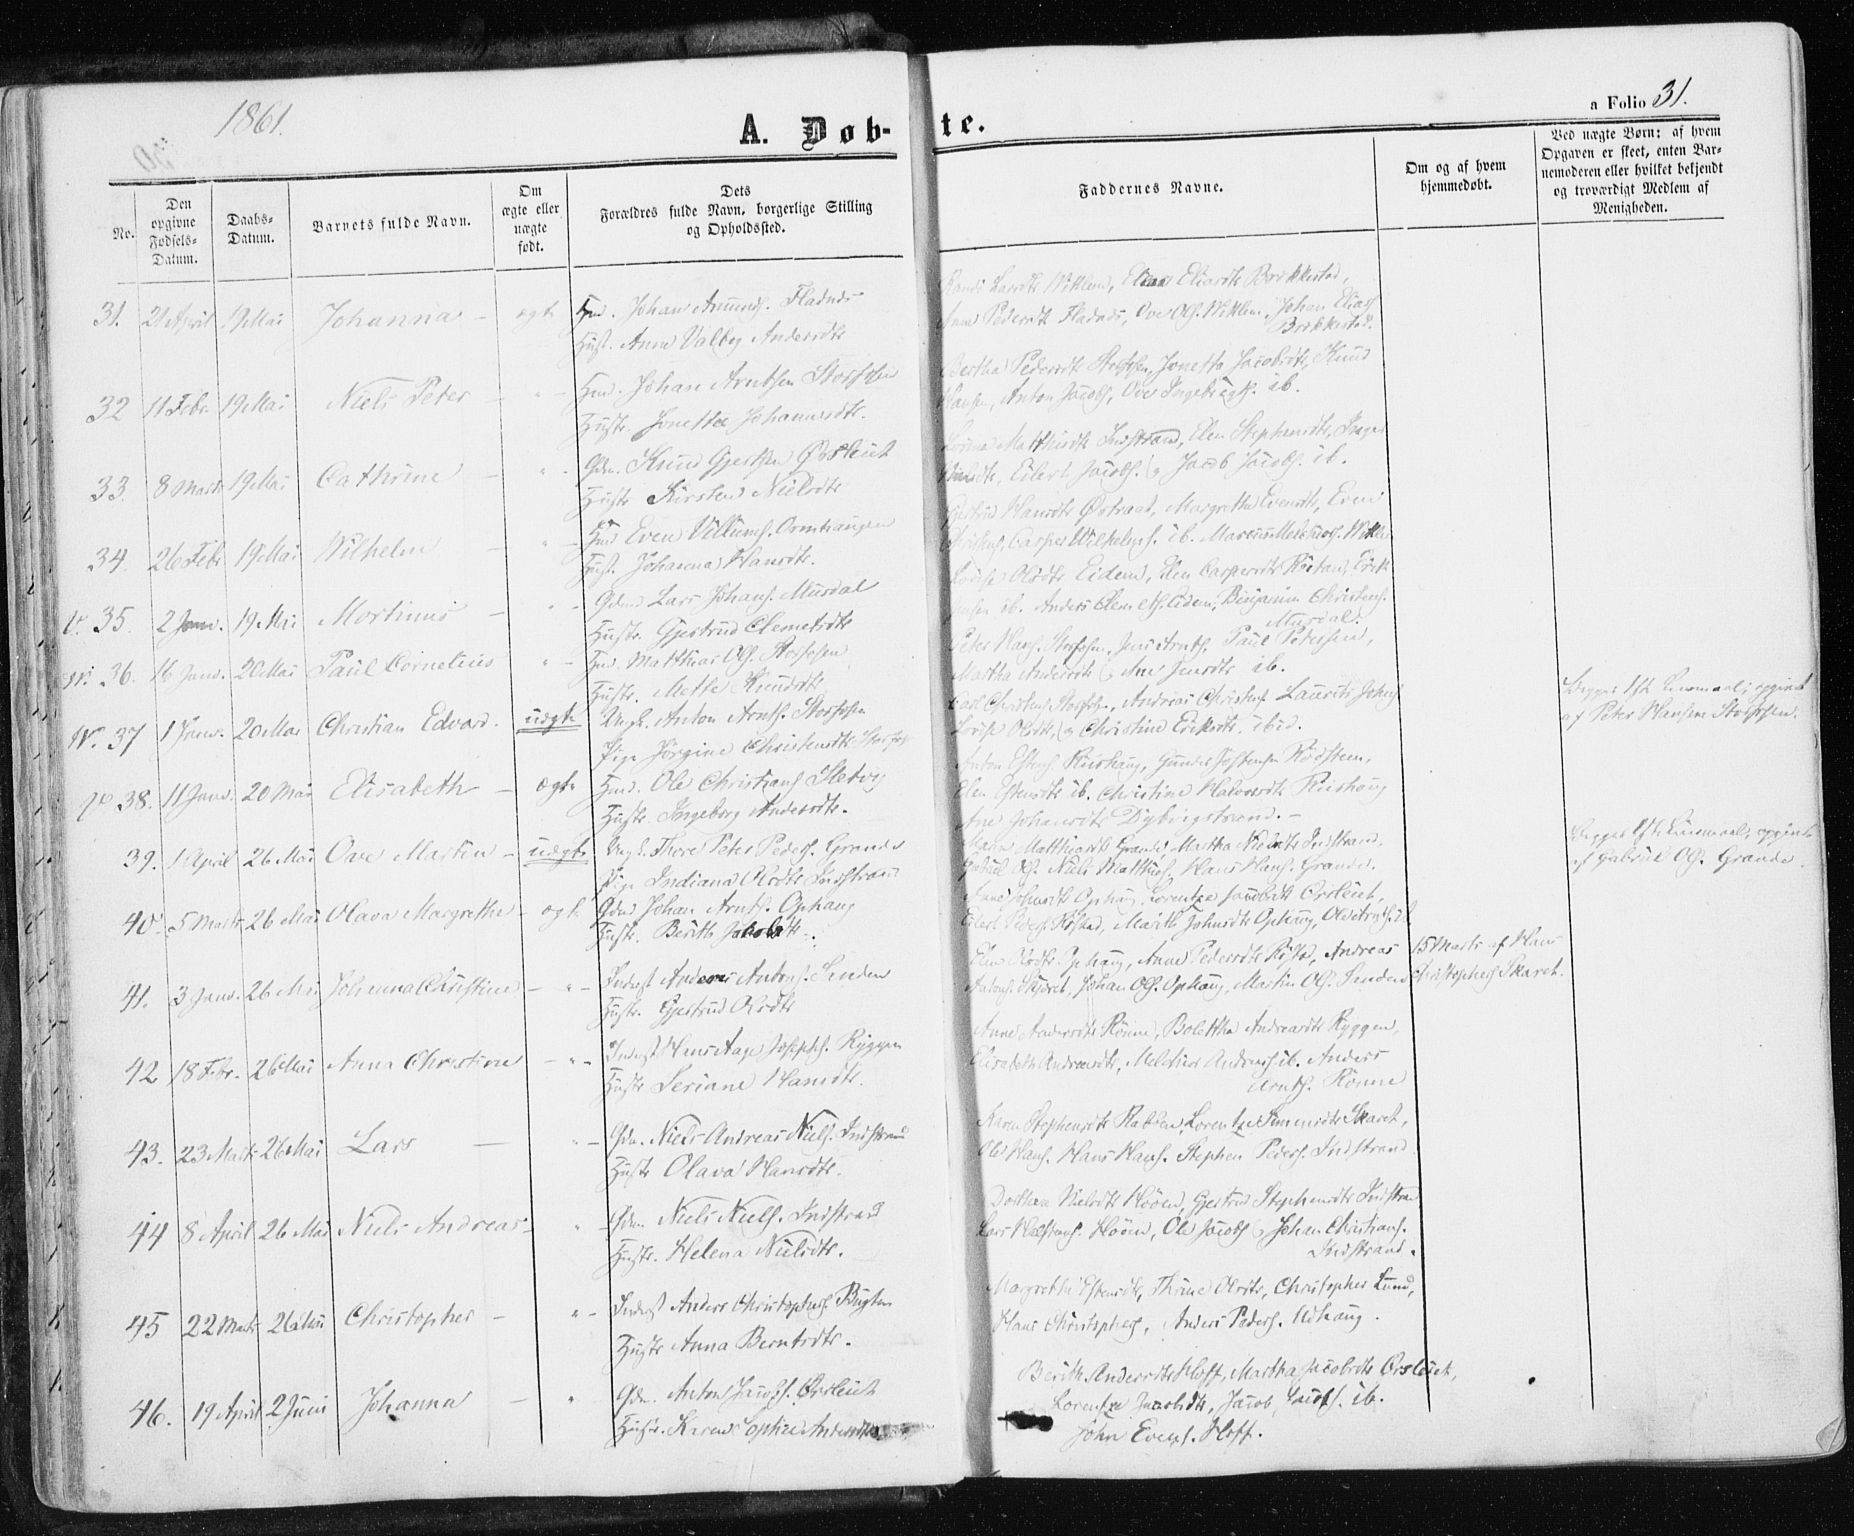 1861.
A. Døbte.
a Folio 31.
No.
Den opgivne Fødsels-Datum.
Daabs-Datum.
Barnets fulde Navn.
Om ægte eller uægte født.
Dets Forældres fulde Navn, borgerlige Stilling og Opholdssted.
Faddernes Navne.
Om og af hvem hjemmedøbt.
Ved uægte Børn; af hvem Opgaven er skeet, enten Barnemoderen eller hvilket bekjendt og troværdigt Medlem af Menigheden.
31. 21 April 19 Mai Johanna – ægte Hmd. Johan Amunds. Fladnes
Hust. Anne Valbog Andersdtr
Larsdtr Wiklem, Elen Eliasdtr Brekkestad,
Anne Pedersdtr Fladnes, Ove Ols. Wiklem, Johan Elias
Brekkestad.
32 11 Febr 19 Mai Niels Peter – " – Hmd. Johan Arntsen Storfosen
Hustr. Jonetta Johannesdtr.
Bertha Pedersdtr Storfosen, Jonetta Jacobsdtr, Knud
Hansen, Anton Jacobs, Ove Ingebrigts. ib.
33. 8 Marts 19 Mai Cathrine – " – Gdm. Knud Gjertsen Ørsleiet
Hustr Kirsten Nielsdtr
Matthisdtr Indstrand, Elen Stephensdtr, Inger
Eilert Jacobs. og Jacob Jacobs. ib.
34. 26 Febr 19 Mai Wilhelm – " – Hmd Even Villums. Ormhaugen
Hust. Johanna Hansdtr.
Gjertrud Hansdtr Østraat, Margrethe Evensdtr, Even
Christens, Casper Wilhelms. ib. Marcus
35. 2 Janv. 19 Mai Mortinus – " – Gdmd Lars Johans. Mursdal
Hustr. Gjertrud Clemetsdtr
Lovise Olsdtr Eidem, Elen Caspersdtr
ib. Anders Clemets. Eidem, Benjamin Christens.
Mursdal.
36. 16 Janv. 20 Mai Paul Cornelius " – Hmd. Matthias Ols. Storfosen
Hustr. Mette Knudsdtr
Peter Hans. Storfosen, Jens Arnts, Paul Petersen,
Martha Andersdtr og Ane Jensdtr ib.
37 1 Janv. 20 Mai Christian Edvard. uægte Ungk. Anton Arnts. Storfosen
Pige Jørgine Christensdtr Storfos
Carl Christens. Storfosen, Andreas Christens. Laurits Johns
Lovise Olsdtr, og Christine Eriksdtr. ibid.
Begges 1ste Leiermaal; opgivet
af Peter Hansen Storfosen.
38. 11 Janv. 20 Mai Elisabeth – ægte Hmd. Ole Christians Sletvig
Hustr. Ingeborg Andersdtr.
Anton Estens
Elen Estensdtr ib. Christine Halvorsdtr
Ane Johansdtr Dybvigstrand. –
39. 1 April 26 Mai Ove Martin – uægte Ungk. Thore Peter Peders. Grande
Pige Indiana Olsdtr Indstrand
Maria Matthiasdtr Grande Martha Nielsdtr Indstrand,
Gabriel Ols. Niels Matthias. Hans Hans. Grande.
Begges 1ste Leiermaal; opgivet
af Gabriel Ols. Grande.
40. 5 Marts 26 Mai Olava Margrethe – ægte Gdmd Johan Arnts. Ophaug
Hustr. Berith Jakobsdtr.
Anne Johansdtr Ophaug, Lorentze Jacobsdtr Ørsleiet,
Eilert Peders. Røstad, Marith Johnsdtr Ophaug, Ole
41. 3 Janv. 26 Mai Johanna Christine – " – Inderst Anders Antons. Sanden
Hustr. Gjertrud Olsdtr
Elen Olsdtr Ophaug, Anne Pedersdtr Røstad, Andreas
Antons. Skaret, Johan Ols. Ophaug, Martin Ols. Sanden
15 Marts af Hans
Christophers Skaret.
42 18 Febr. 26 Mai Anna Christine – " – Inderst Hans Aage Josephs. Ryggen
Hustr Seriane Hansdtr.
Anne Andersdtr Rønne, Bolettha Andreasdtr Ryggen,
Elisabeth Andreasdtr, Melchior Andreas. ib. Anders
Arnts. Rønne
43. 23 Marts 26 Mai Lars – " – Gdm. Niels Andreas Niels. Indstrand
Hustr Olava Hansdtr.
Karen Stephensdtr Rabben, Lorentze Simensdtr Skaret,
Ole Hans. Hans Hans. Stephen Peders. Indstrand
44 8 April 26 Mai Niels Andreas – " – Gdm. Niels Niels. Indstrand
Hustr. Helena Nielsdtr.
Dorthea Nielsdtr Hoøen, Gjertrud Stephensdtr Indstrand
Lars Hoøen, Ole Jacobs og Johan Christians.
Indstrand.
45 22 Marts 26 Mai Christopher – " – Inderst Anders Christophers Bugten
Hustr Anna Berntsdtr.
Margrethe Estensdtr, Thrine Olsdtr, Christopher Lund,
Hans Christophers, Anders Peders. Udhaug.
46. 19 April 2 Juni Johanna – " Gdm. Anton Jacobs. Ørsleiet
Hustr. Karen Sophie Andersdtr
Berith Andersdtr Hoff, Martha Jacobsdtr Ørsleiet,
Lorentze Jacobsdtr, Jacob Jacobs. ib.
John Evens. Hoff.